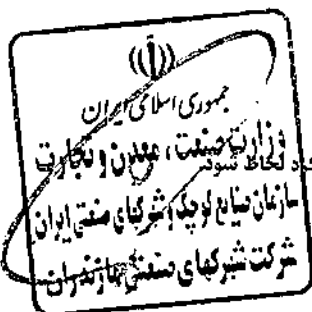 جمهوری اسلامی ایران
وزارت صنعت، معدن و تجارت
لحاظ شود
سازمان صنایع کوچک و شهرکهای صنعتی ایران
شرکت شهرکهای صنعتی مازندران